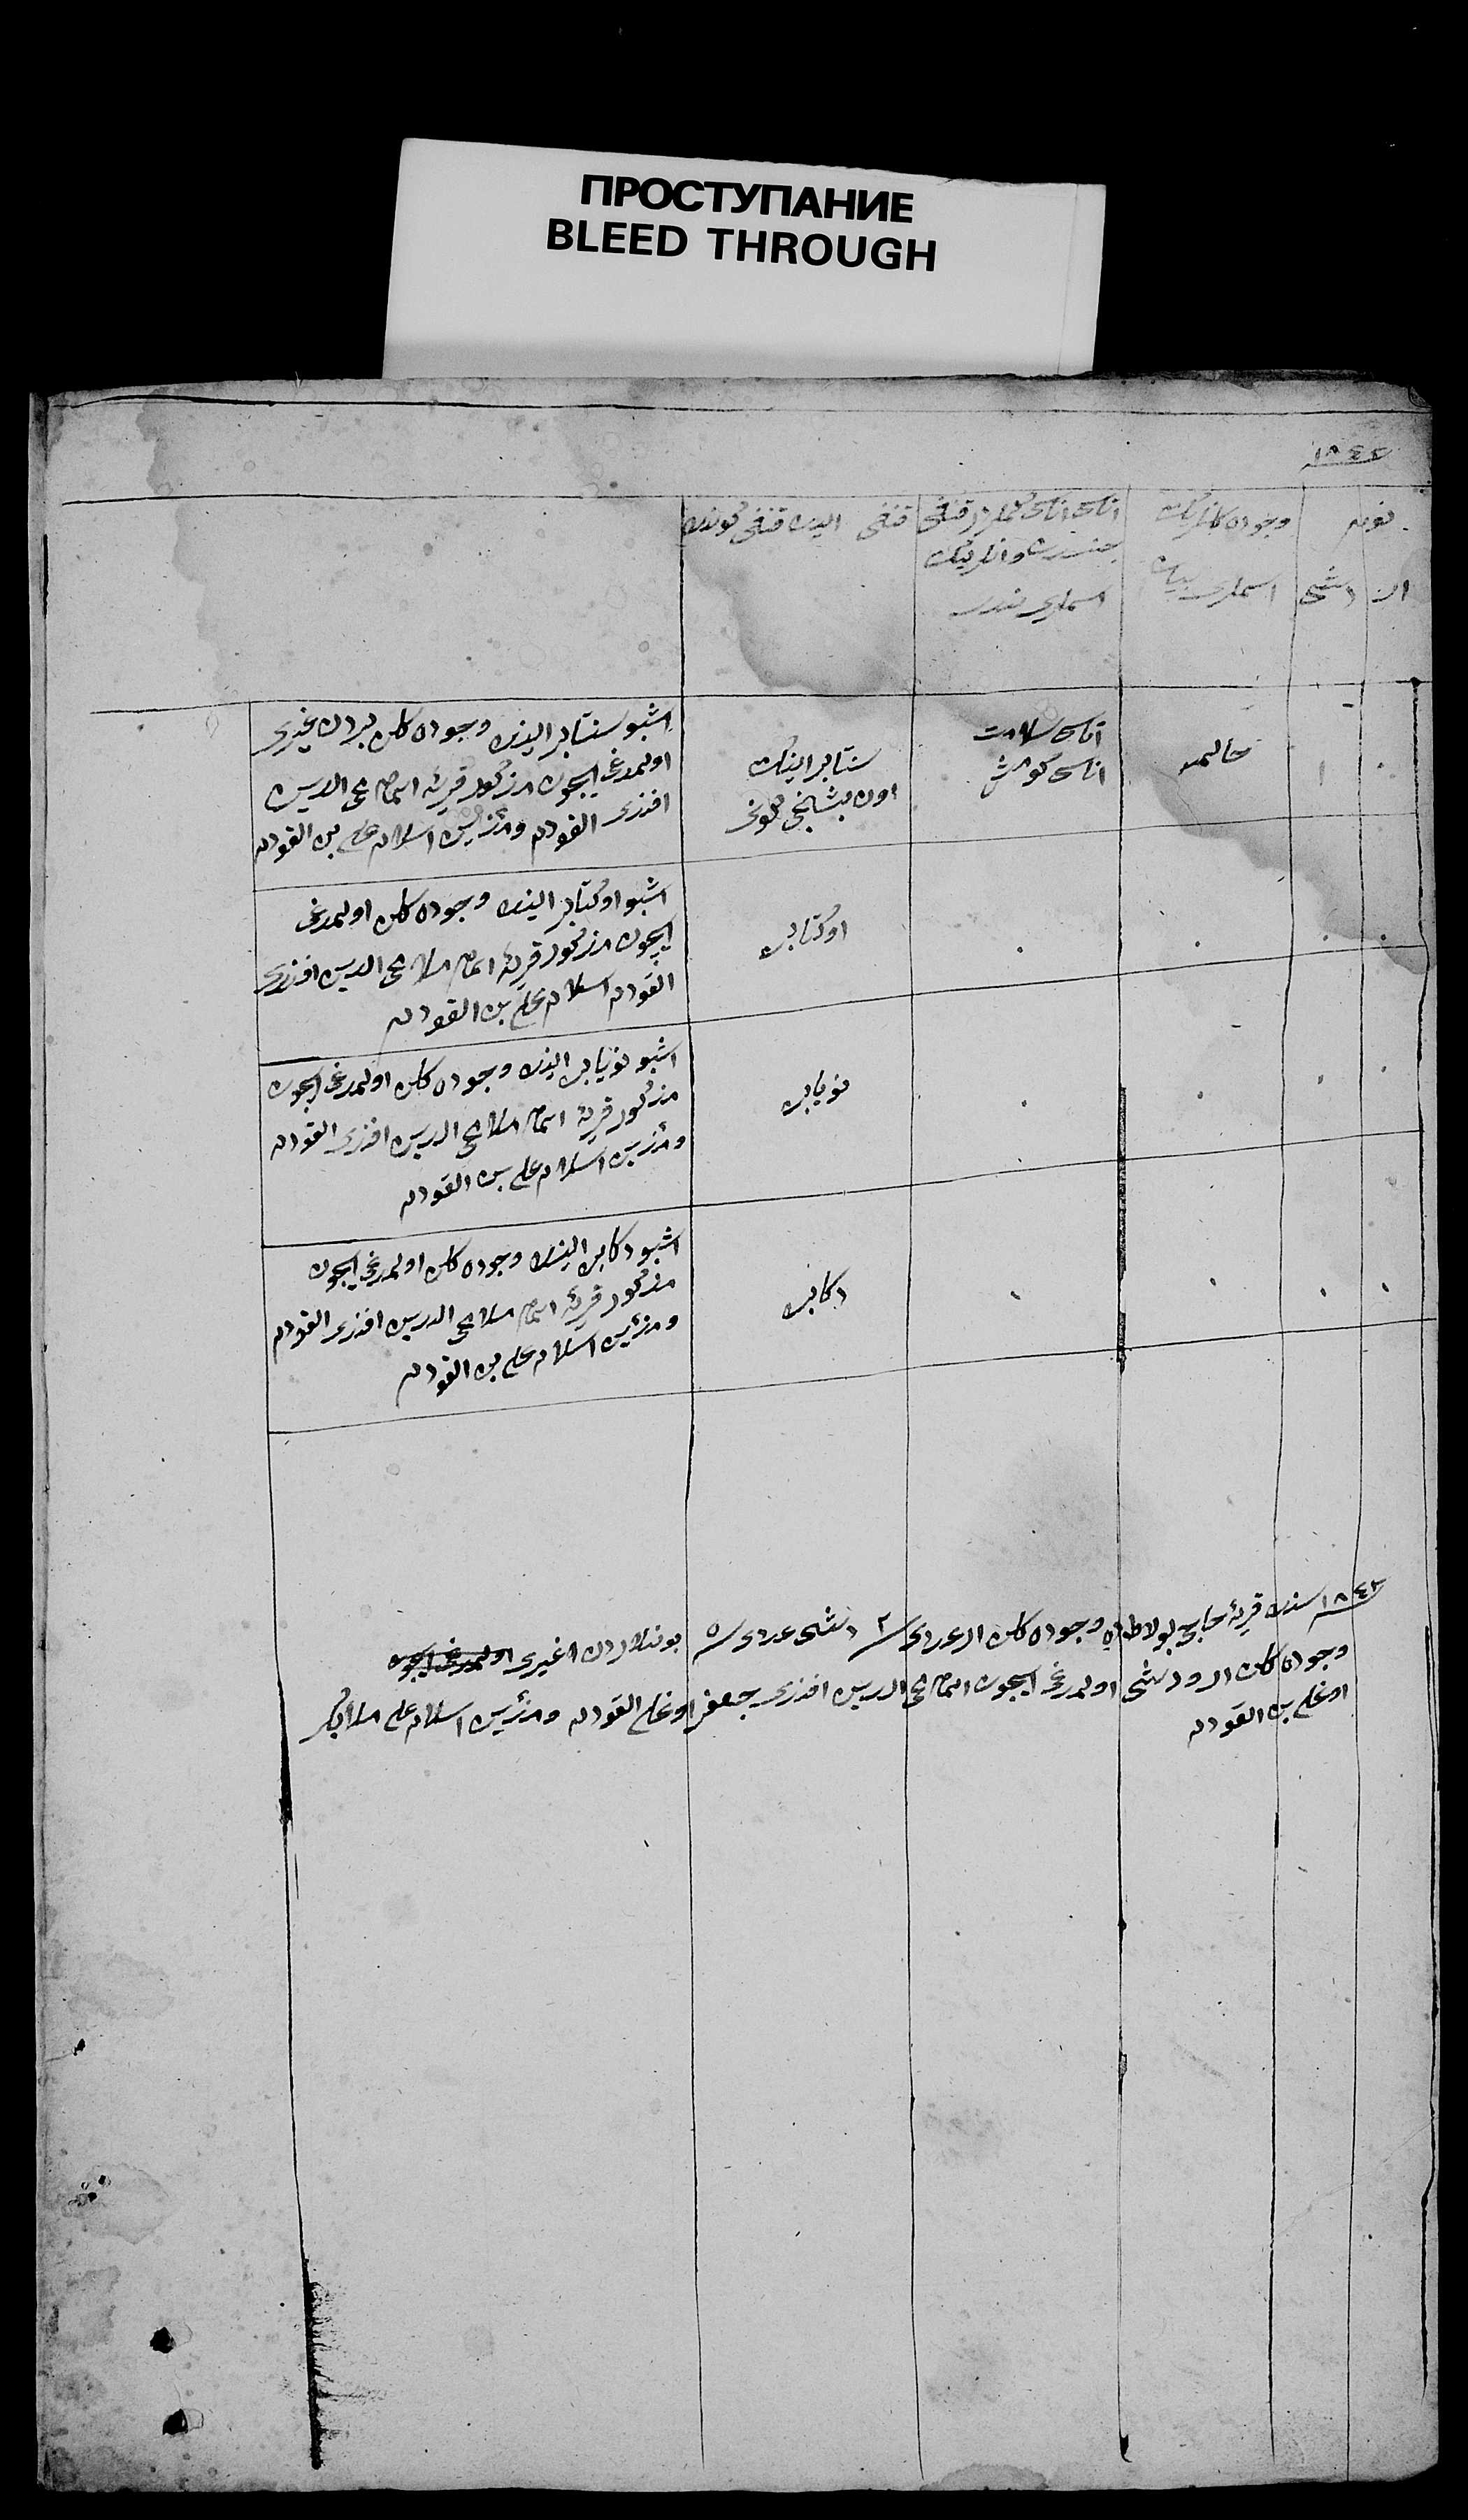 ПРОСТУПАНИЕ
BLEED THROUGH
١٨٤٢
نومر
ار
دشی
وجوده کلانلرنیک
اسملری
اتاسی اناسی کملر در قنغی
اسملری ندر
قنغی ایده قنغی کونده
١
حلیمه
اتاسی سلامت
اناسی کومش
سنتابر اینک
اون بشنجی کونی
اشبو سنتابر اینده وجوده کلن بردن غیری
اولمدغی ایچون مذکور قریه امام محی الدین
افندی القولم ومؤذن اسلام علی بن القولم
اوکتابر
اشبو اوکتابر اینده وجوده کلن اولمدغی
ایچون مذکور قریه امام ملا محی الدین افندی
القولم اسلام علی بن القولم
نویابر
اشبو نویابر اینده وجوده کلن اولمدغی ایچون
مذکور قریه امام ملا محی الدین افندی القولم
ومؤذن اسلام علی بن القولم
دکابر
اشبو دکابر اینده وجوده کلن اولمدغی ایچون
مذکور قریه امام ملا محی الدین افندی القولم
ومؤذن اسلام علی بن القولم
١٨٤٢ سنه قریه حاجی بولاطده وجوده کلن ار عددی ٢ دشی عددی ٥ بونلاردن غیری اولمدغی ایچون
وجوده کلن ار ودشی اولمدغی ایچون امام محی الدین افندی جعفر اوغلی القولم ومؤذن اسلام علی ملا ابکر
اوغلی بن القولم